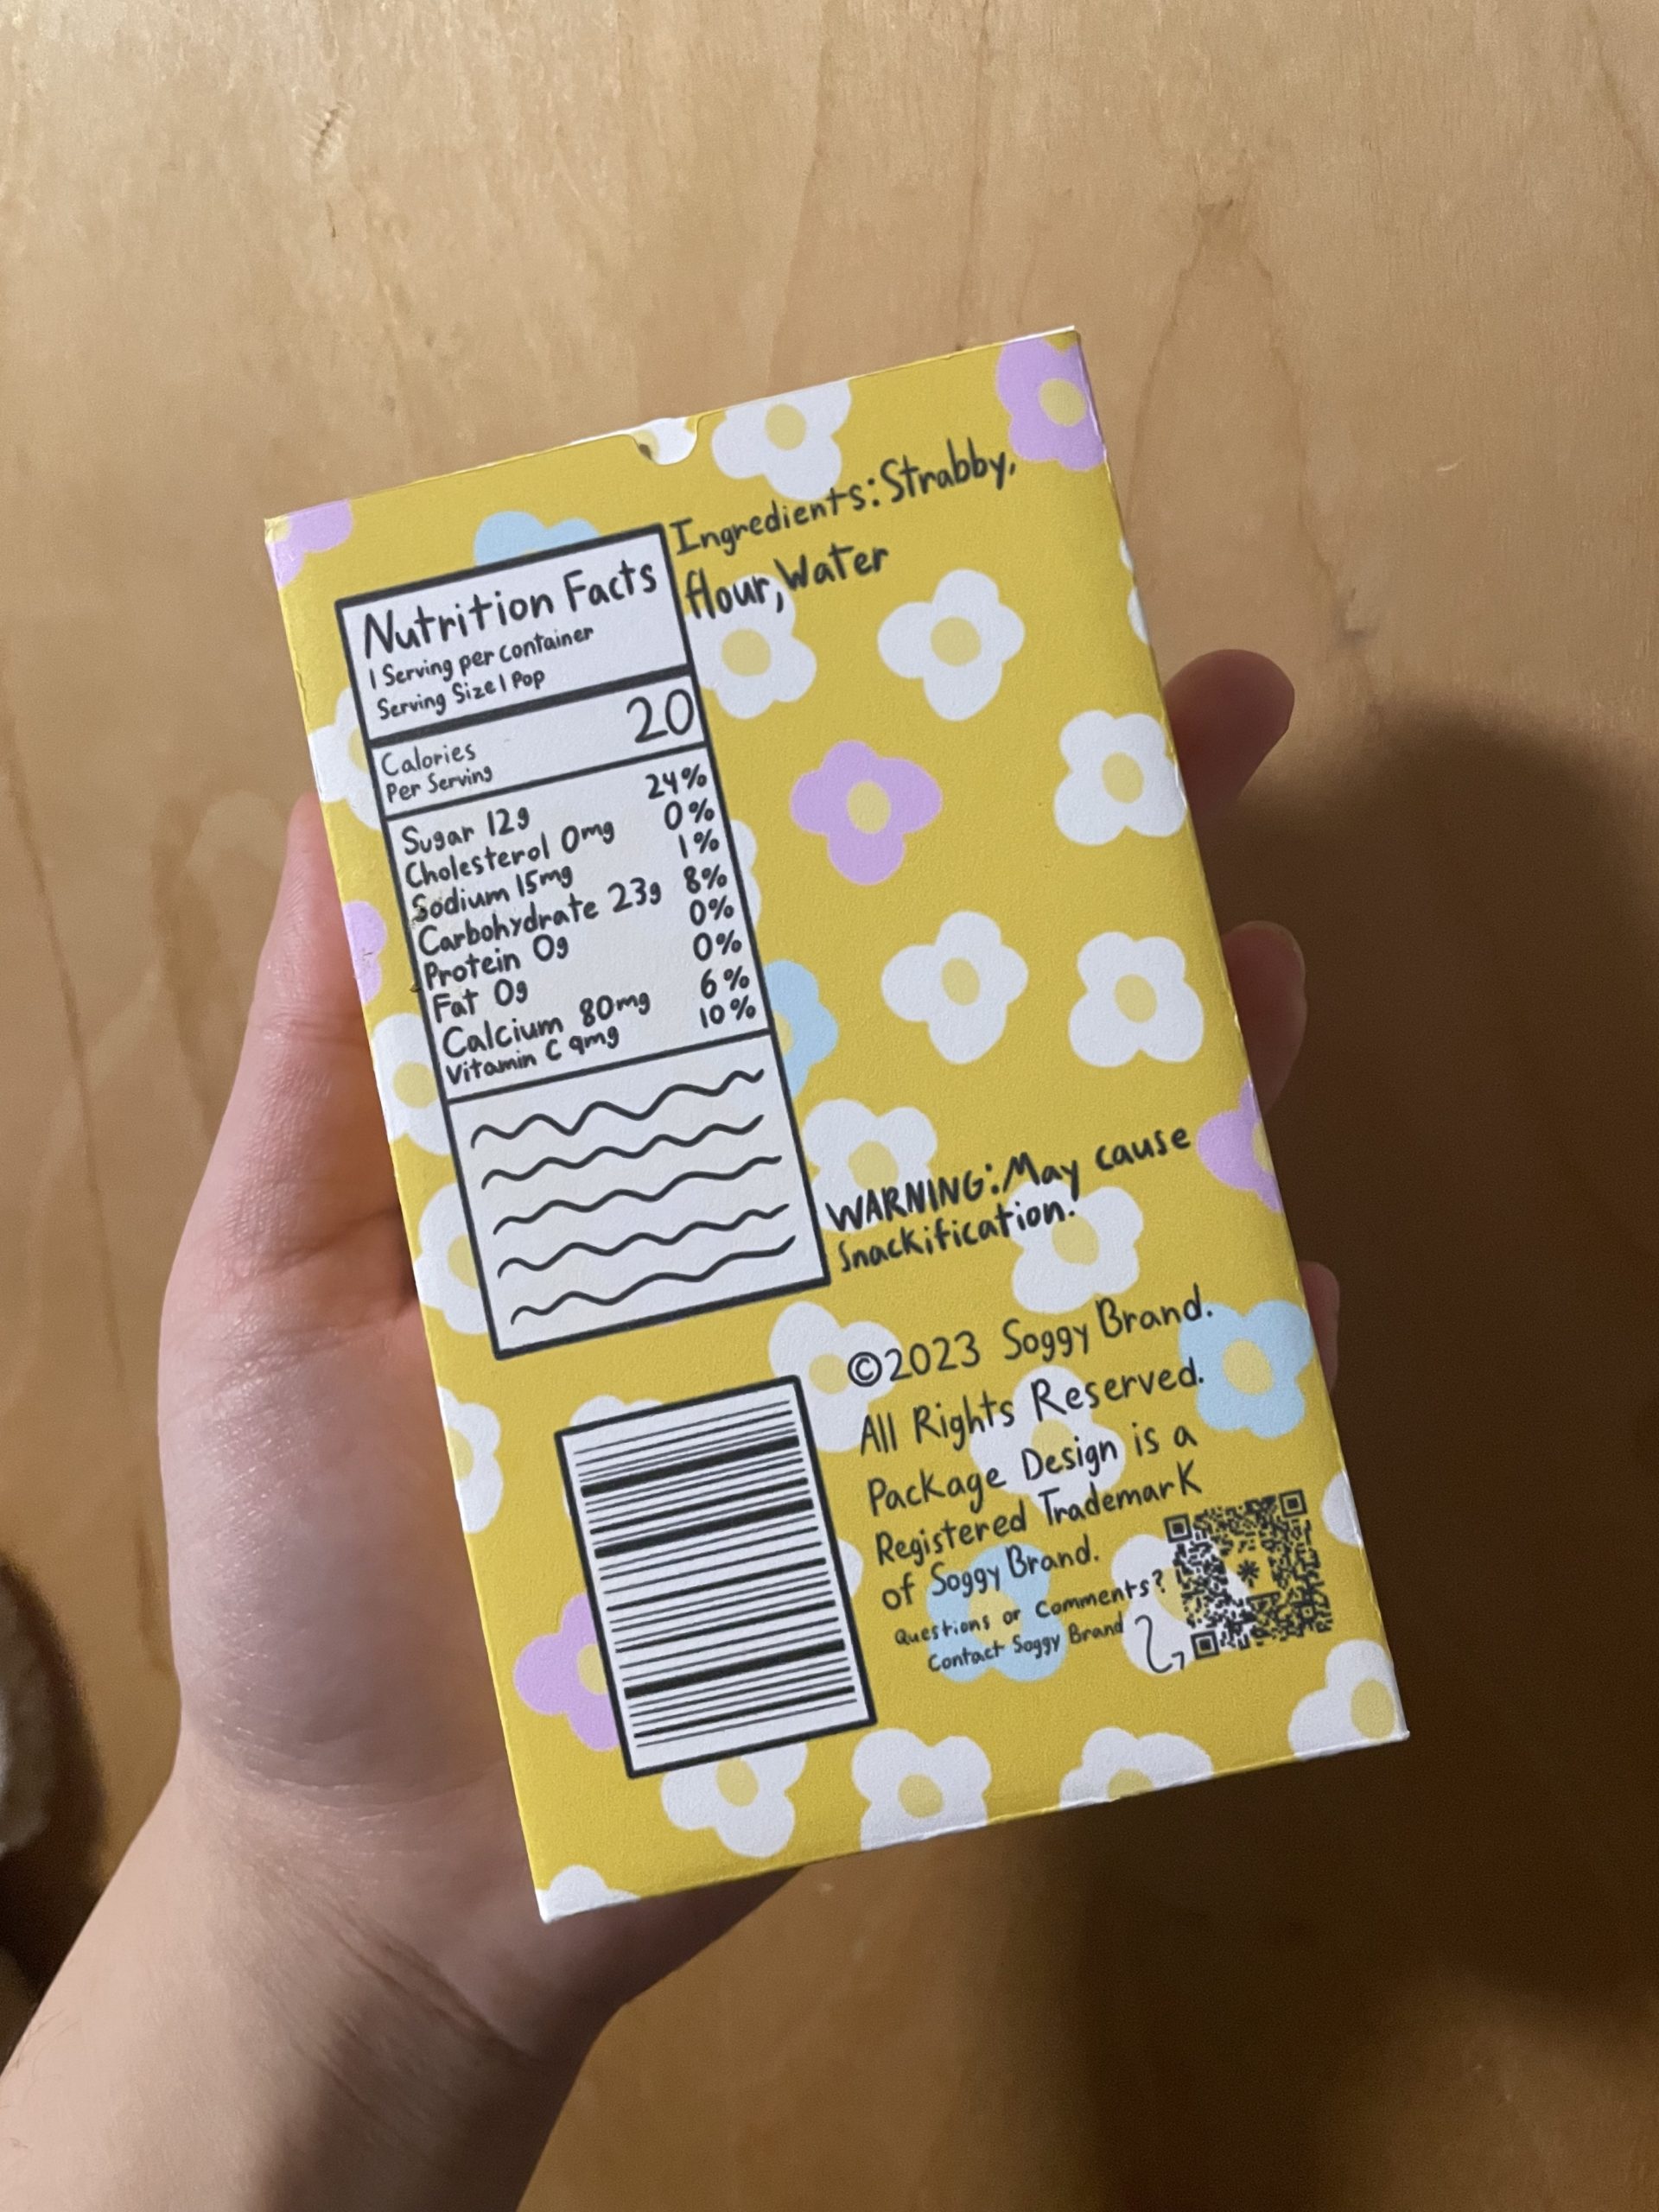 Ingredients: Strabby,
flour, Water
Nutrition Facts
1 Serving per container
Serving Size 1 Pop
Calories 20
Per Serving
Sugar 12g 24%
Cholesterol 0mg 0%
Sodium 15mg 1%
Carbohydrate 23g 8%
Protein 0g 0%
Fat 0g 0%
Calcium 80mg 6%
Vitamin C 9mg 10%
WARNING: May cause
Snackification!
©2023 Soggy Brand.
All Rights Reserved.
Package Design is a
Registered Trademark
of Soggy Brand.
Questions or Comments?
Contact Soggy Brand